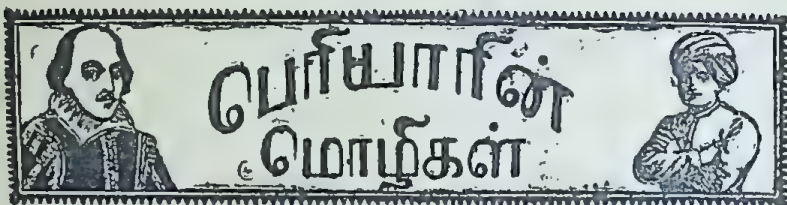 பெரியாரின்
மொழிகள்